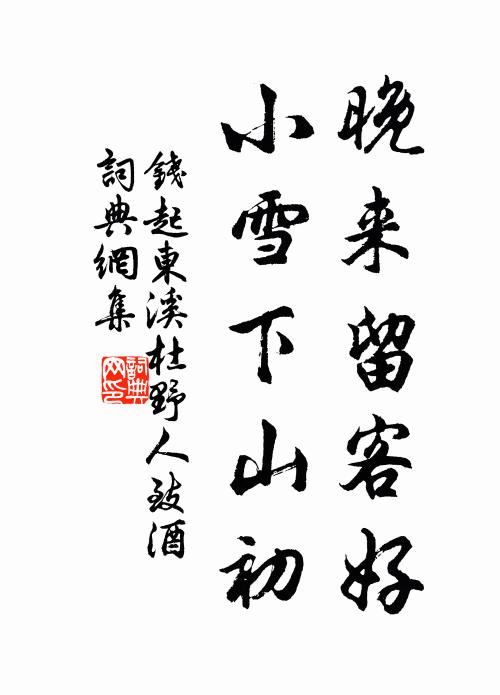 晚来留客好
小雪下山初
錢起東溪杜野人致酒
詞典網集
詞典
网印